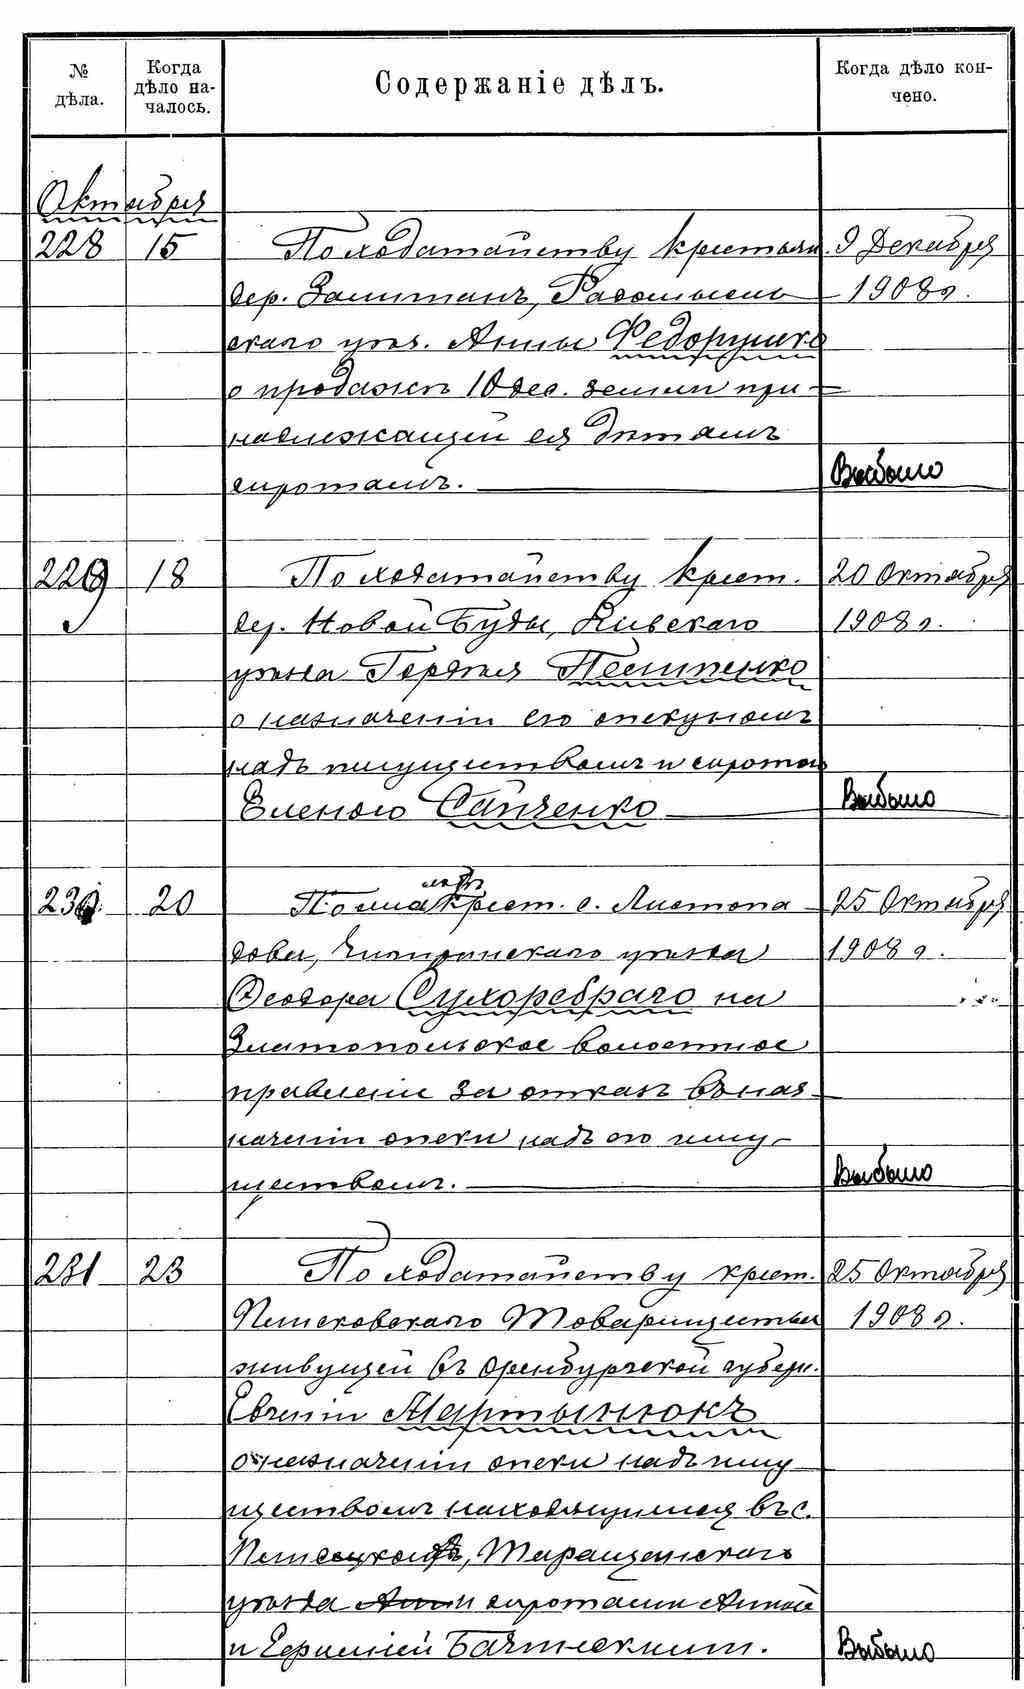 № дѣла.
Когда дѣло на-
чалось.
Содержаніе дѣлъ.
Когда дѣло кон-
чено.
Октября
228 15 По ходатайству крестьян. 9 Декабря
дер. Заміт​анъ, Радомысль- 1908 г.
скаго уѣз. Анны Федорушко
о продажѣ 10 дес. земли при-
надлежащей ея дѣтямъ
сиротамъ. Выбыло
229 18 По ходатайству крест. 20 Октября
дер. Новой Буды, Кіевскаго 1908 г.
уѣзда Гордѣя
о назначеніи его опекуномъ
надъ имуществомъ и сиротою
Еленою Сайченко Выбыло
230 20 По жалобѣ крест. с. Листопа- 25 Октября
дова, Чигиринскаго уѣзда 1908 г.
Феодора Сухоребраго на
Златопольское волостное
правленіе за отказъ въ наз-
наченіи опеки надъ его иму-
ществомъ. Выбыло
231 23 По ходатайству крест. 25 Октября
Товарищества 1908 г.
живущей въ Оренбургской губерн.
Евгеніи Мартынюкъ
о назначеніи опеки надъ иму-
ществомъ находящимся въ с.
Таращанскаго
уѣзда и сиротами Анной
и Евфиміей Выбыло